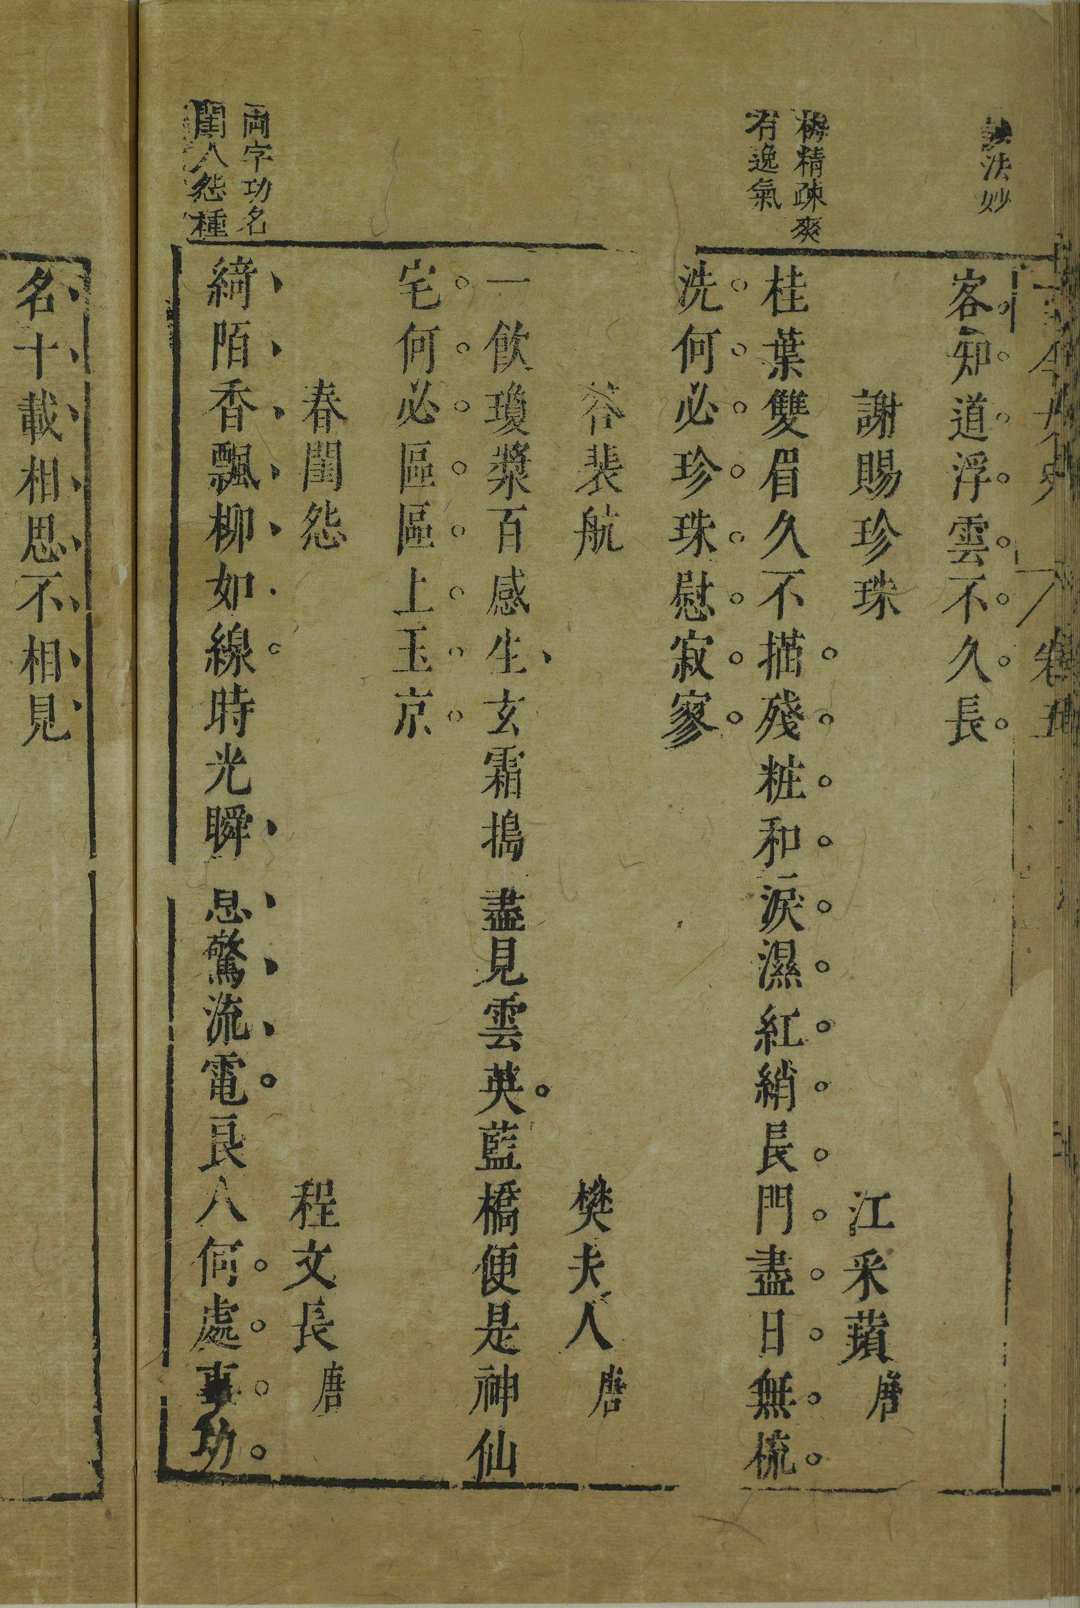 法妙
客知道浮雲不久長
謝賜珍珠
江采蘋唐
梅精疎爽
有逸氣
桂葉雙眉久不描殘粧和淚濕紅綃長門盡日無梳
洗何必珍珠慰寂寥
答裴航
樊夫人唐
一飲瓊漿百感生玄霜搗盡見雲英藍橋便是神仙
宅何必區區上玉京
春閨怨
程文長唐
両字功名
閨人怨種
綺陌香飄柳如線時光瞬息驚流電良人何處事功
名十載相思不相見